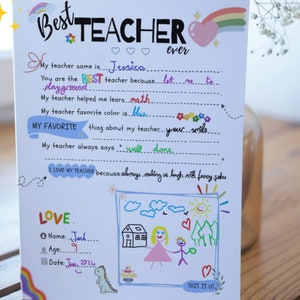 Best TEACHER ever
My teacher name is Jessica
You are the BEST teacher because let me to
playground
My teacher helped me learn math
My teacher favorite color is blue
MY FAVORITE thing about my teacher your smile
My teacher always says " well done
I LOVE MY TEACHER because always making us laugh with funny jokes
LOVE
Name: Jack
Age: 9
Date: June, 2024
THIS IS US